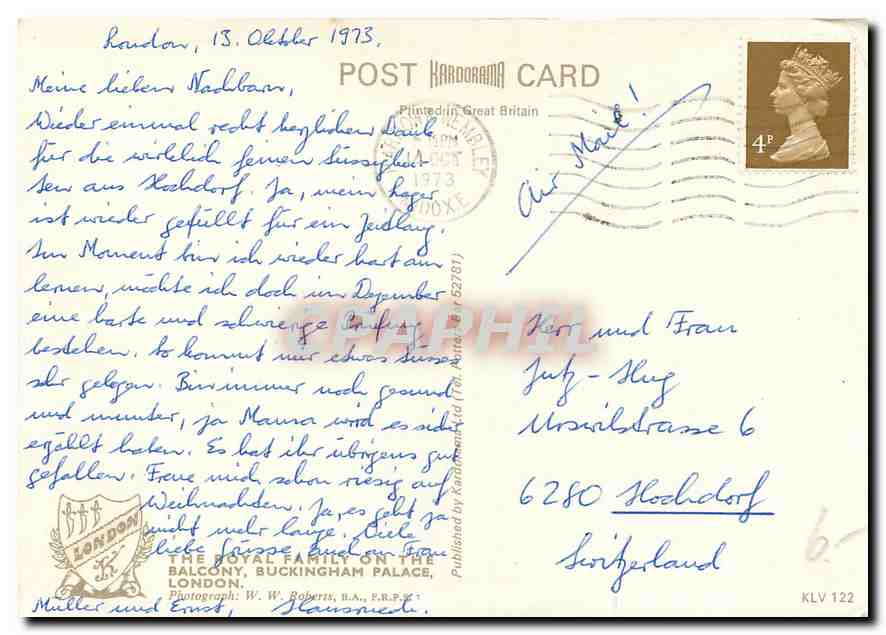 London, 13. Oktober 1973.
Meine lieben Nachbarn,
Wieder einmal recht herzlichen Dank
für die wirklich feinen Süssigkei-
ten aus Hochdorf. Ja, mein Lager
ist wieder gefüllt für ein Zeitlang.
Im Moment bin ich wieder hart am
lernen, möchte ich doch im Dezember
eine harte und schwierige Prüfung
bestehen. So kommt mir etwas Süsses
sehr gelegen. Bin immer noch gesund
und munter, ja Mama wird es sicher
erzählt haben. Es hat ihr übrigens gut
gefallen. Freue mich schon riesig auf
Weihnachten. Ja, es geht ja
nicht mehr lange. Viele
liebe Grüsse, auch an Frau
Müller und Ernst, Hansruedi.
POST KARDORAMA CARD
Printed in Great Britain
WEMBLEY
PM
14 OCT
1973
MDDX E
Air Mail!
4P
Published by Kardorama Ltd (Tel. Potters Bar 52781)
CPAPHIL
Herr und Frau
Jutz-Hug
Urswilstrasse 6
6280 Hochdorf
Switzerland
6.-
LONDON
K
THE ROYAL FAMILY ON THE
BALCONY, BUCKINGHAM PALACE,
LONDON.
Photograph: W. W. Roberts, B.A., F.R.P.S.
KLV 122